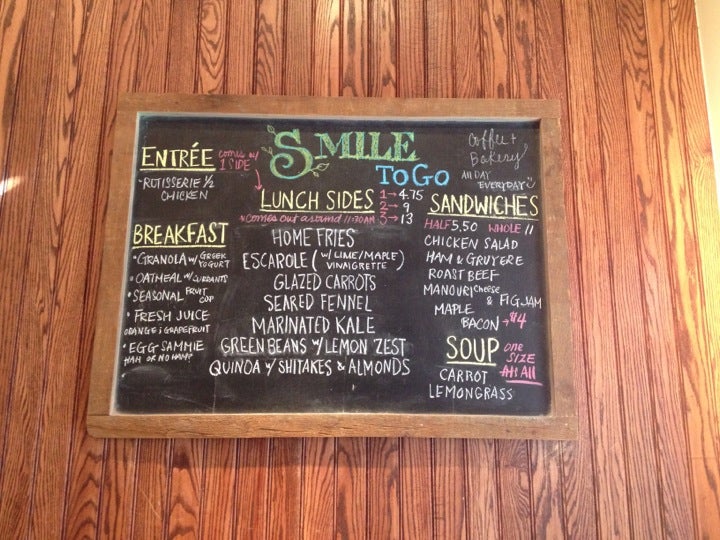 SMILE
TO GO
Coffee +
Bakery
All DAY
EVERYDAY
ENTRÉE comes w/
1 SIDE
ROTISSERIE 1/2
CHICKEN
BREAKFAST
• GRANOLA w/ GREEK
YOGURT
• OATMEAL w/ CURRANTS
• SEASONAL FRUIT
CUP
• FRESH JUICE
ORANGE & GRAPEFRUIT
• EGG SAMMIE
HAM OR NO HAM?
LUNCH SIDES
*comes out around 11:30AM
1→4.75
2→9
3→13
HOME FRIES
ESCAROLE (W/ LIME/MAPLE
VINAIGRETTE)
GLAZED CARROTS
SEARED FENNEL
MARINATED KALE
GREEN BEANS W/ LEMON ZEST
QUINOA W/ SHITAKES & ALMONDS
SANDWICHES
HALF 5.50 WHOLE 11
CHICKEN SALAD
HAM & GRUYERE
ROAST BEEF
MANOURI Cheese
& FIG JAM
MAPLE
BACON →$4
SOUP one
SIZE
CARROT
LEMONGRASS